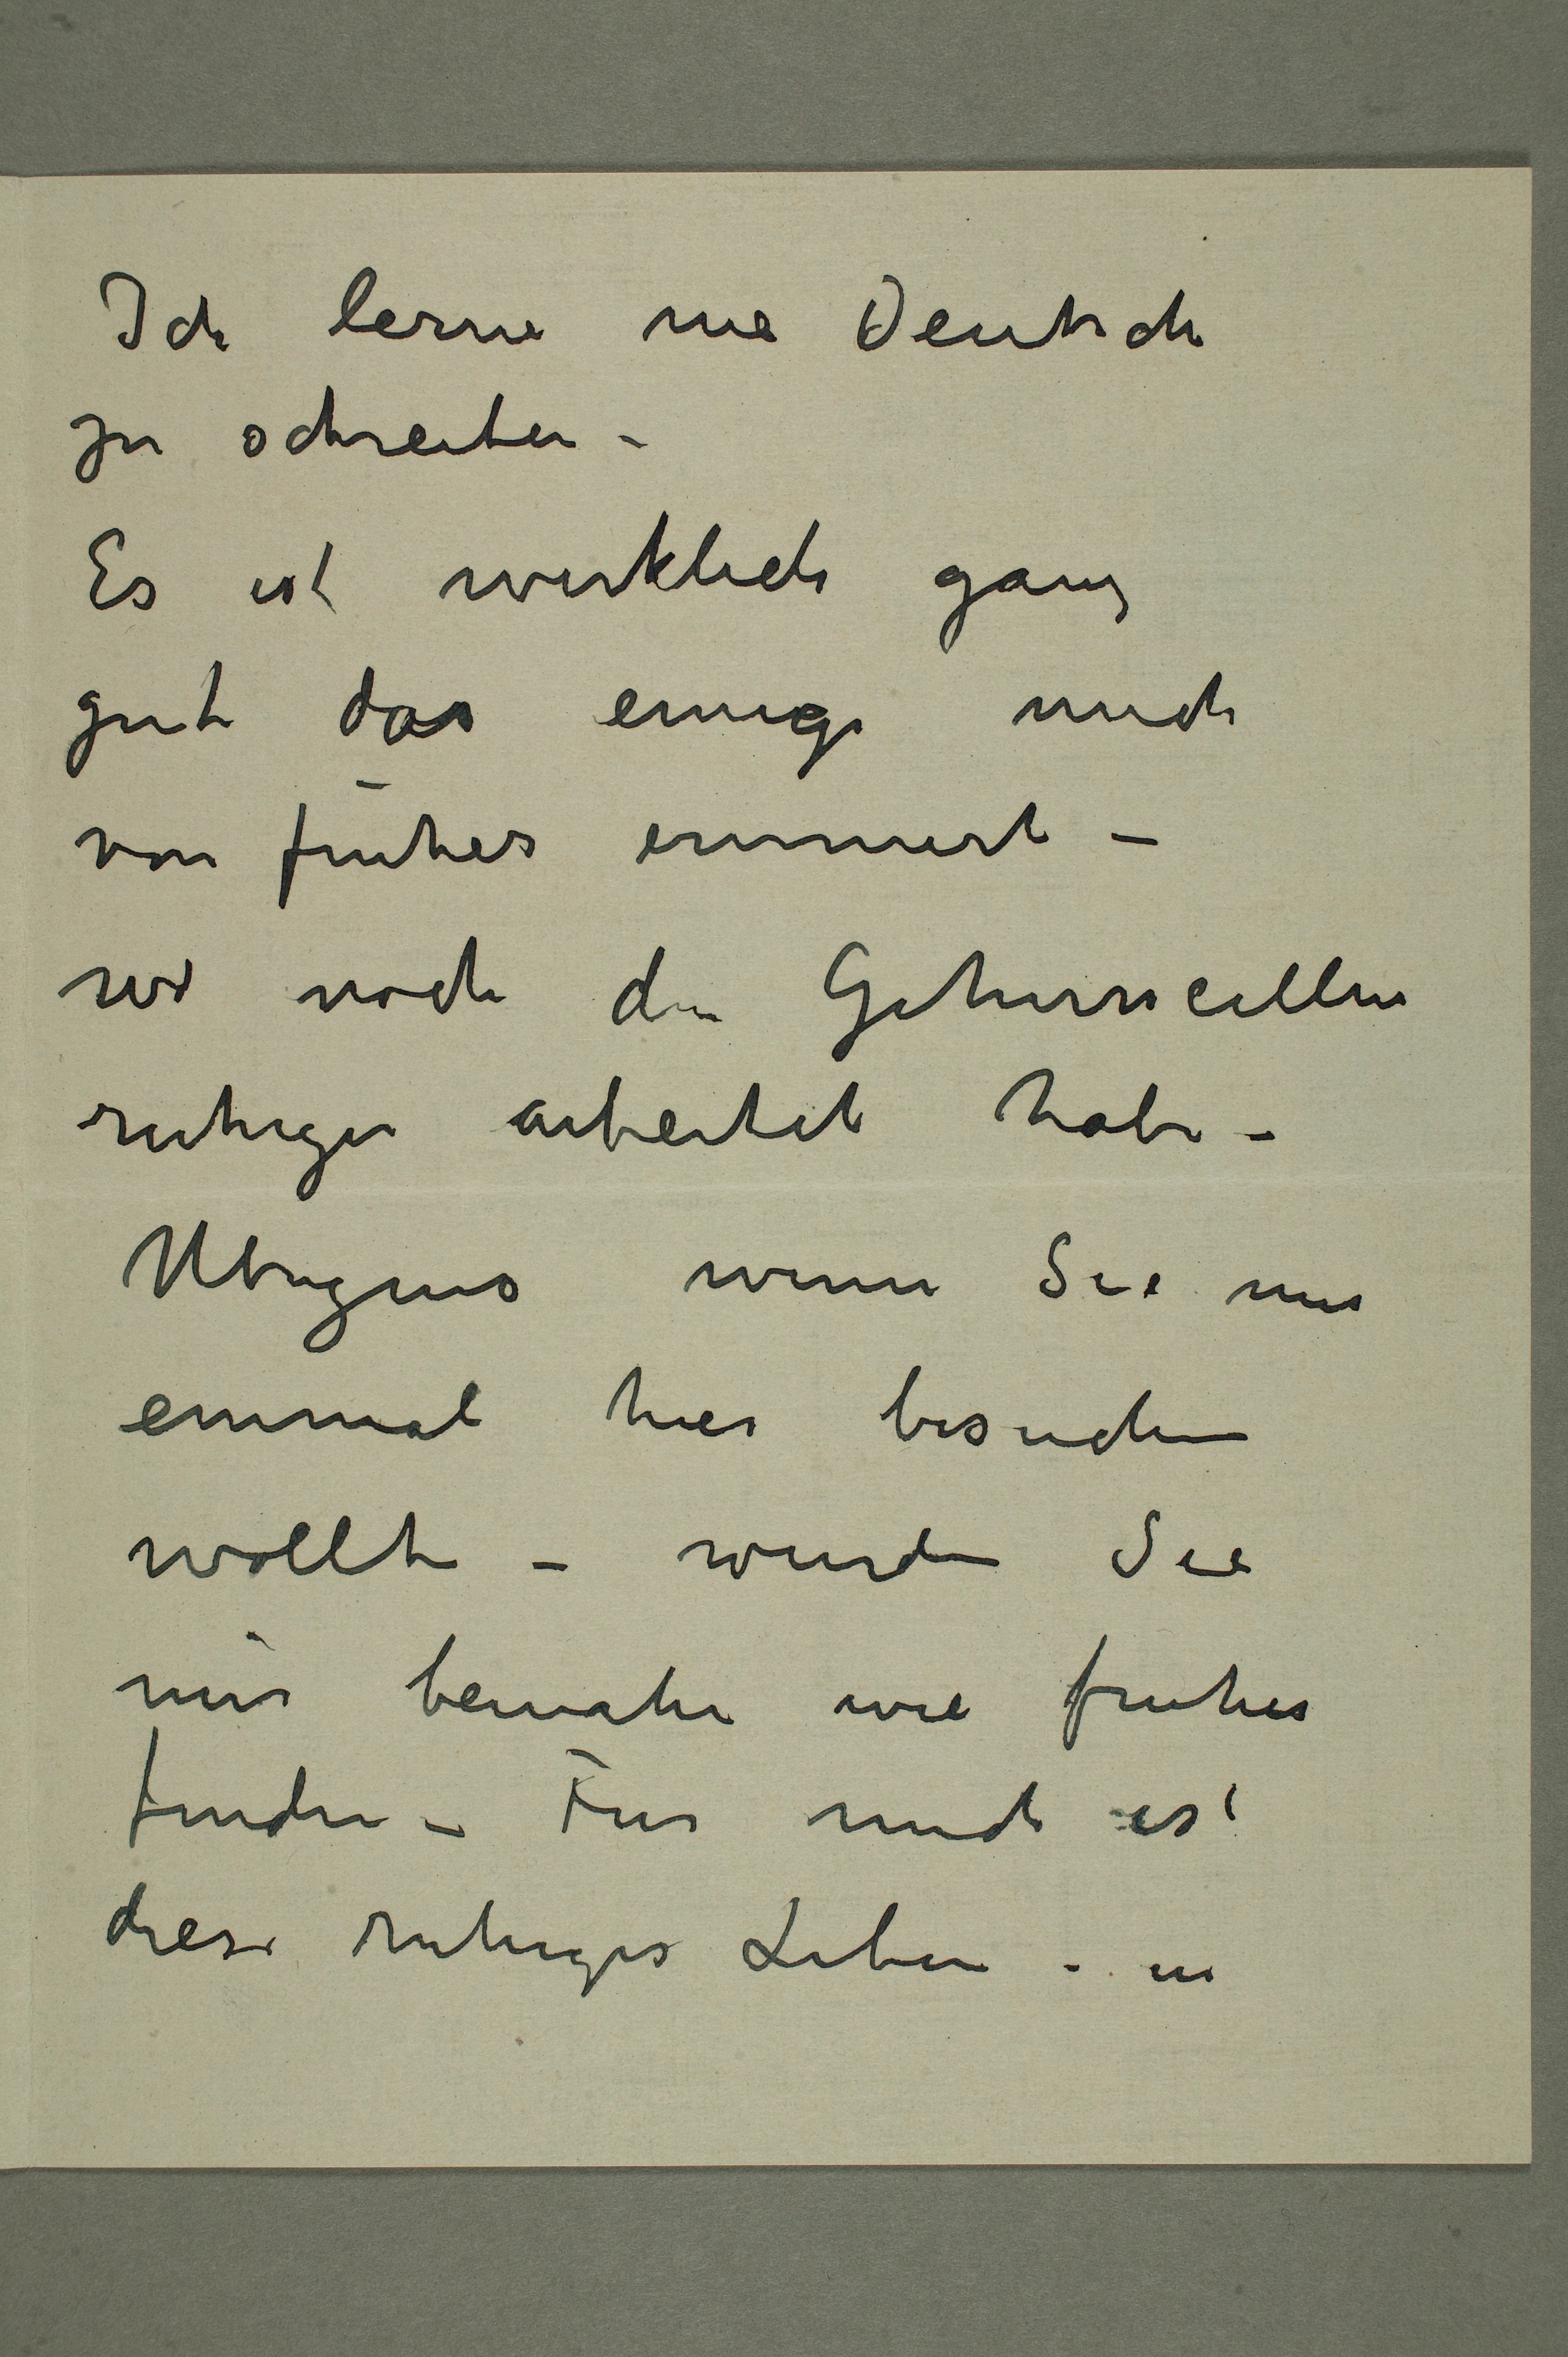 Ich lerne nie Deutsch
zu schreiben –
Es ist wirklich ganz
gut das einige mich
von früher erinnert –
wo noch die Gehirncellen
ruhiger arbeitet habe –
Ubrigens wenn Sie mir
einmal hier besuchen
wollte – wurden Sie
mir beinahe wie fruher
finden – Für mich ist
diese ruhiges Leben – in